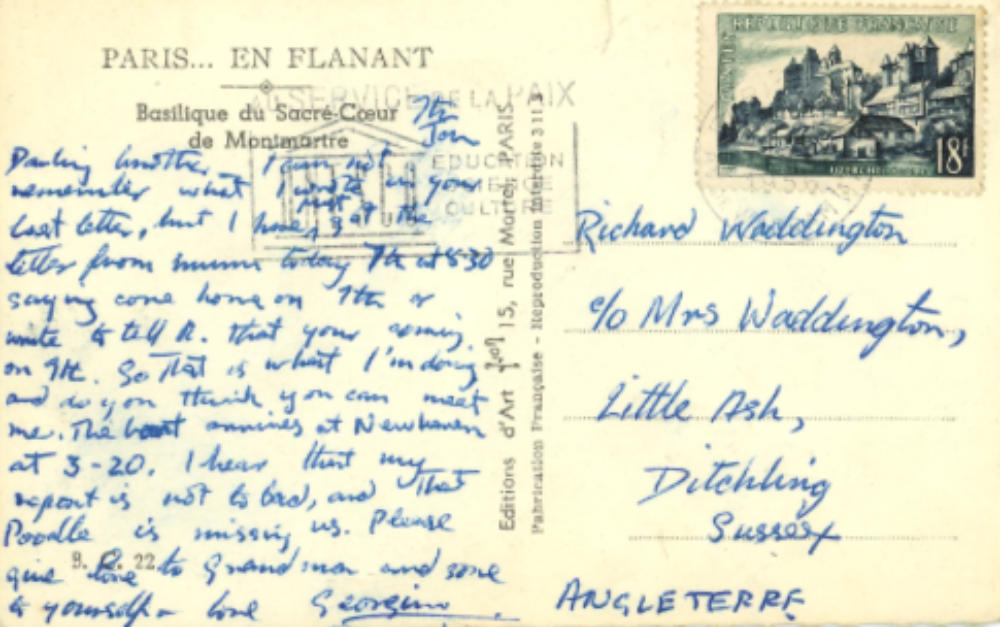 PARIS... EN FLANANT
Basilique du Sacré-Cœur
de Montmartre
AU SERVICE DE LA PAIX
EDUCATION
SCIENCE
CULTURE
7th
Jan
Darling brother, I can not
remember what I wrote in your
last letter, but I have just got the
letter from mummy today 7th at 8 30
saying come home on 9th or
write to tell R. that your coming
on 9th. So That is what I'm doing
and do you think you can meet
me. The boat arrives at Newhaven
at 3-20. I hear that my
report is not to bad, and That
Poodle is missing us. Please
give love to Grandma and some
to yourself - love Georgina
B. 22
Editions d'Art 15, rue Martel, PARIS
Fabrication Française - Reproduction Interdite 3113
REPUBLIQUE FRANÇAISE
POSTES
18F
UZERCHE
Richard Waddington
c/o Mrs Waddington,
Little Ash,
Ditchling
Sussex
ANGLETERRE